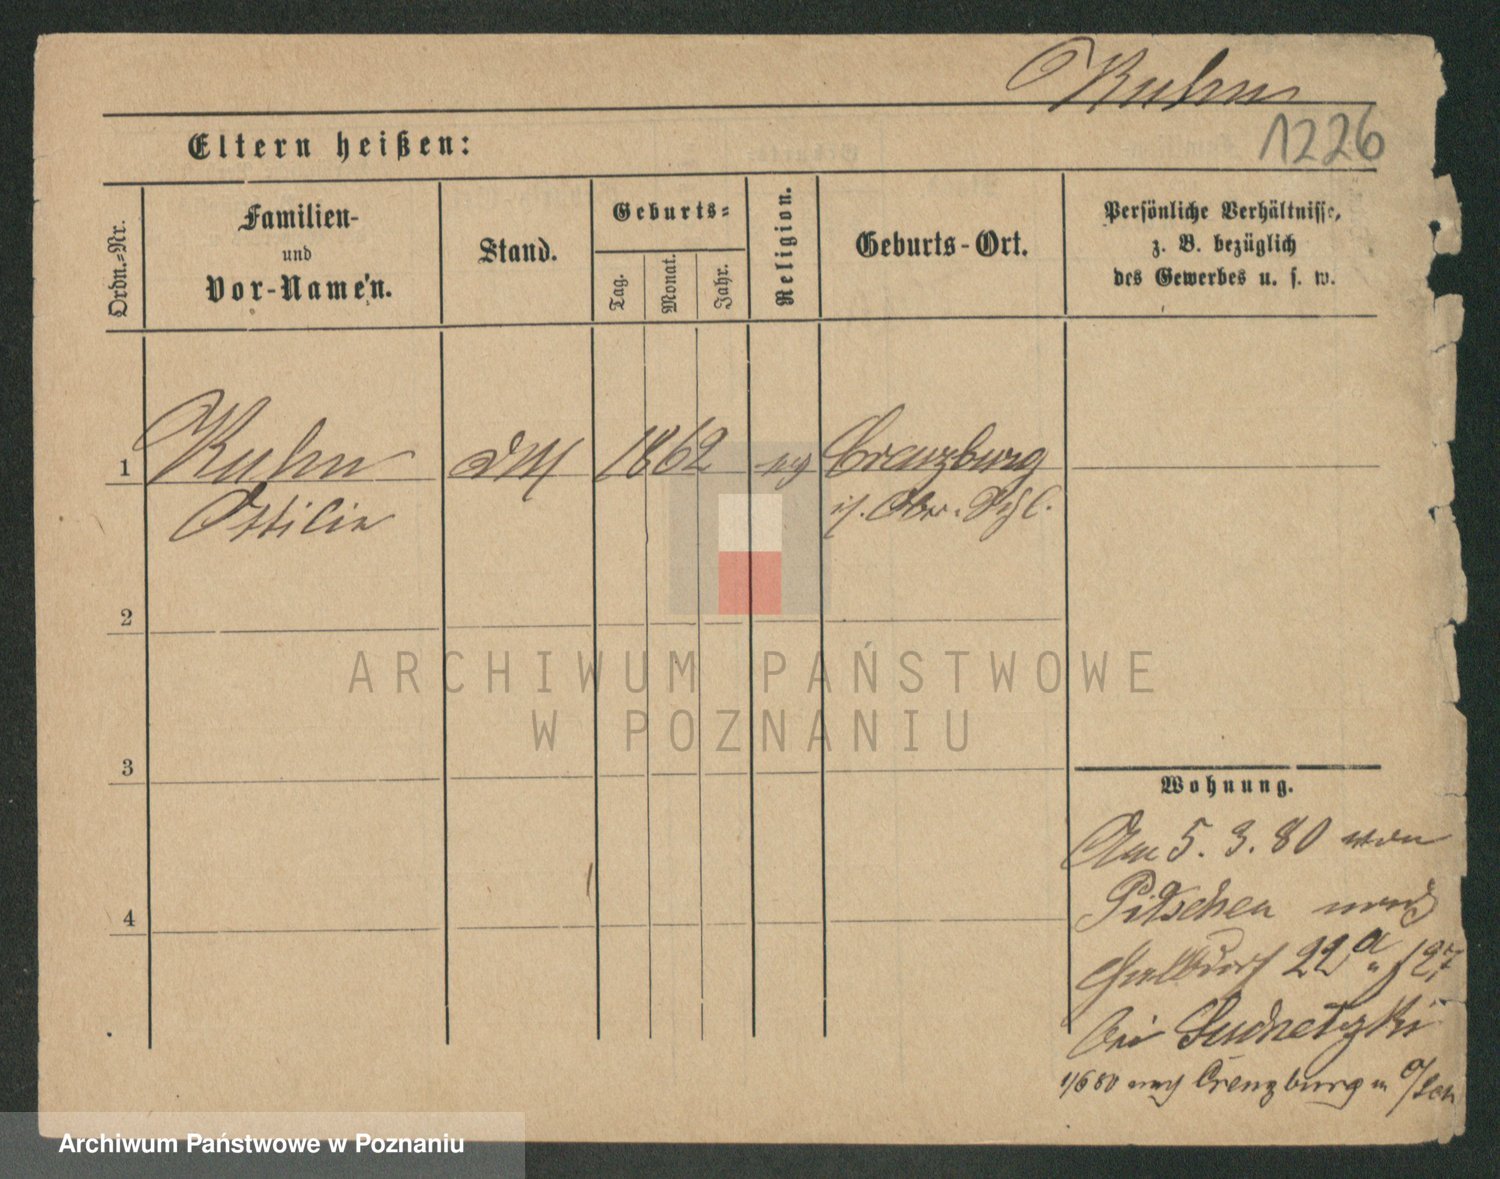 Kuhn
1226
Eltern heißen:
Ordn.-Nr.
Familien-
und
Vor-Namen.
Stand.
Geburts-
Tag.
Monat.
Jahr.
Religion.
Geburts-Ort.
Persönliche Verhältnisse,
z. B. bezüglich
des Gewerbes u. s. w.
1
Kuhn
Ottilie
1862
Creuzburg
2
3
4
Wohnung.
Am 5. 3. 80 von
Pitschen nach
22a
bei
1/6 80 nach Creuzburg
ARCHIWUM PAŃSTWOWE
W POZNANIU
Archiwum Państwowe w Poznaniu